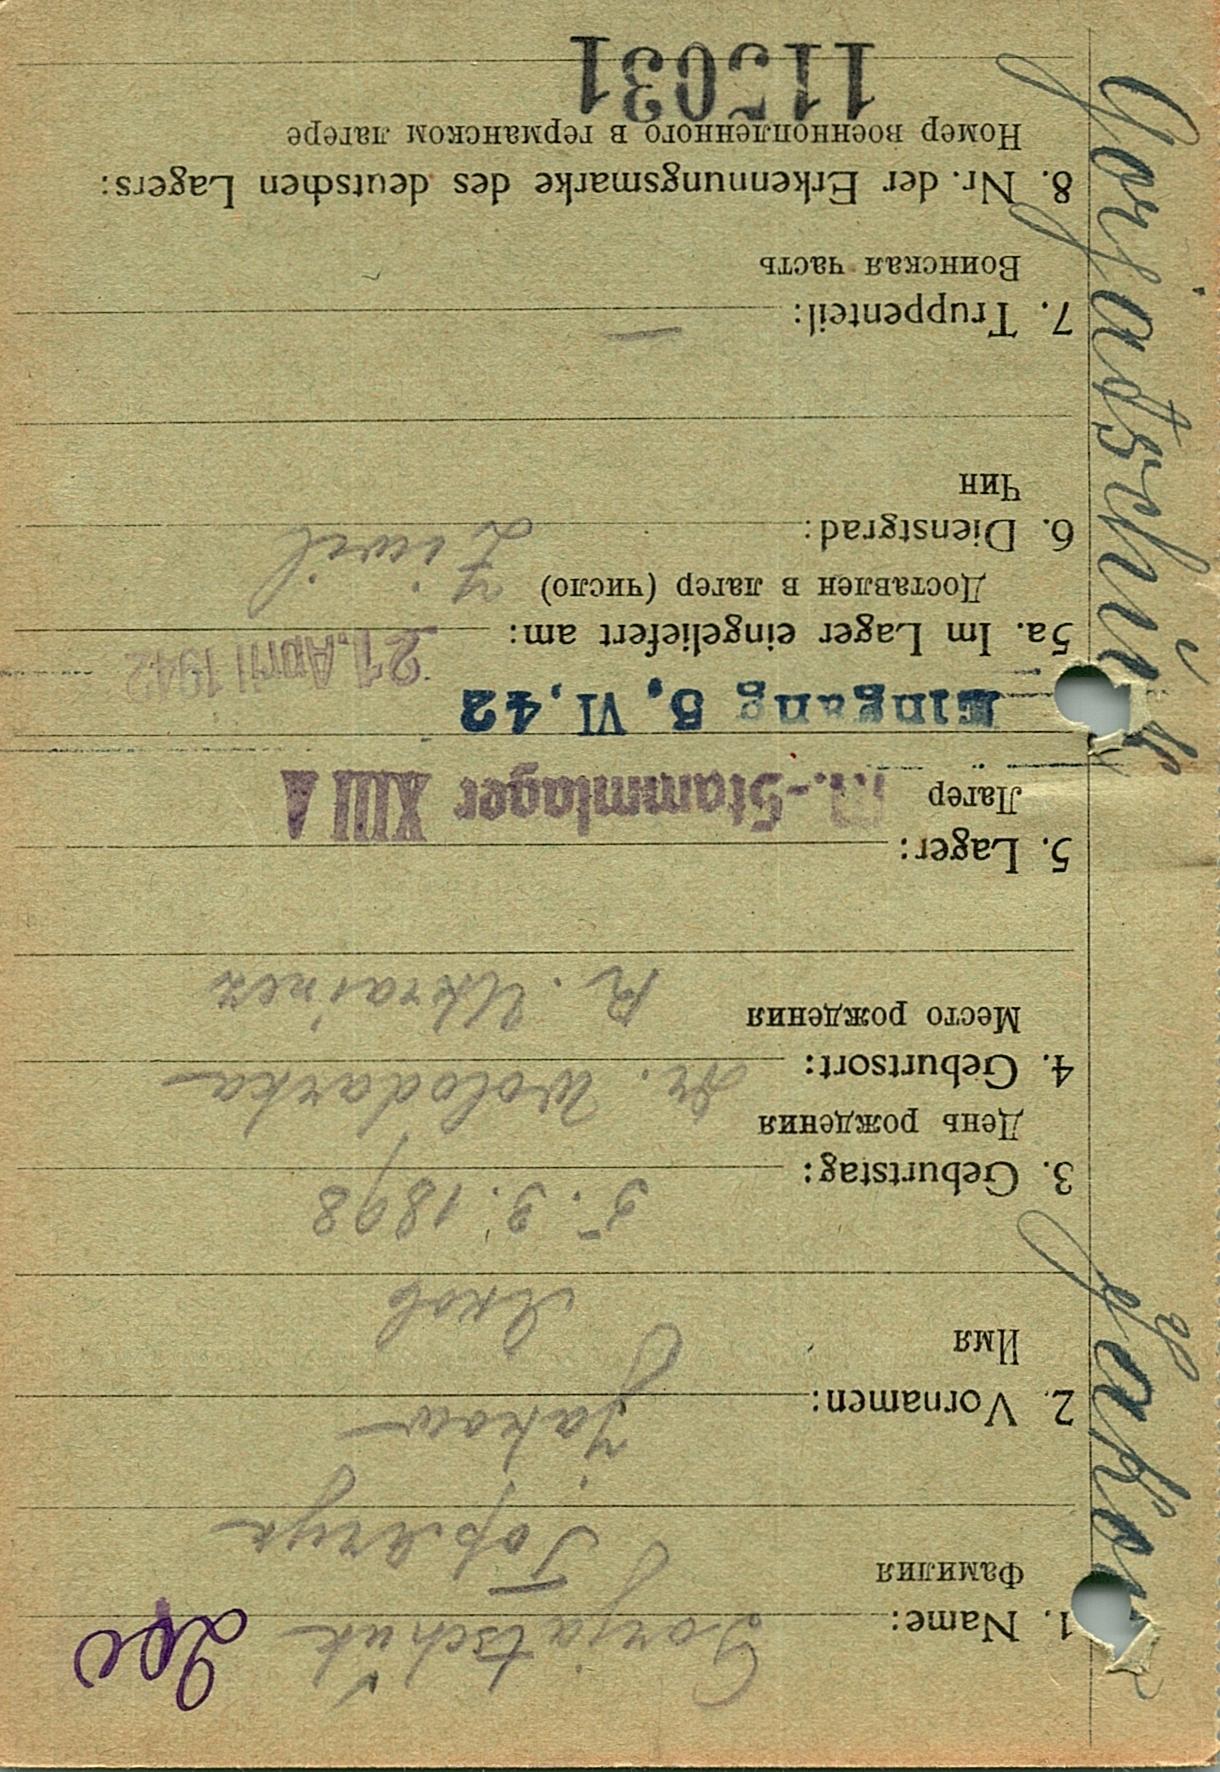 Gorjatschuk Jakow
1. Name: Gorjatschuk
Фамилия Горячук
2. Vornamen: Jakow
Имя Яков
3. Geburtstag: 5.3.1898
День рождения
4. Geburtsort: Wolodarka
Место рождения R. Ukrainez
5. Lager:
Лагер M.-Stammlager XIII A
Eingang 5. VI. 42
21. April 1942
5a. Im Lager eingeliefert am:
Доставлен в лагер (число)
6. Dienstgrad: Zivil
Чин
7. Truppenteil: —
Воинская часть
8. Nr. der Erkennungsmarke des deutschen Lagers:
Номер военнопленного в германском лагере
115031